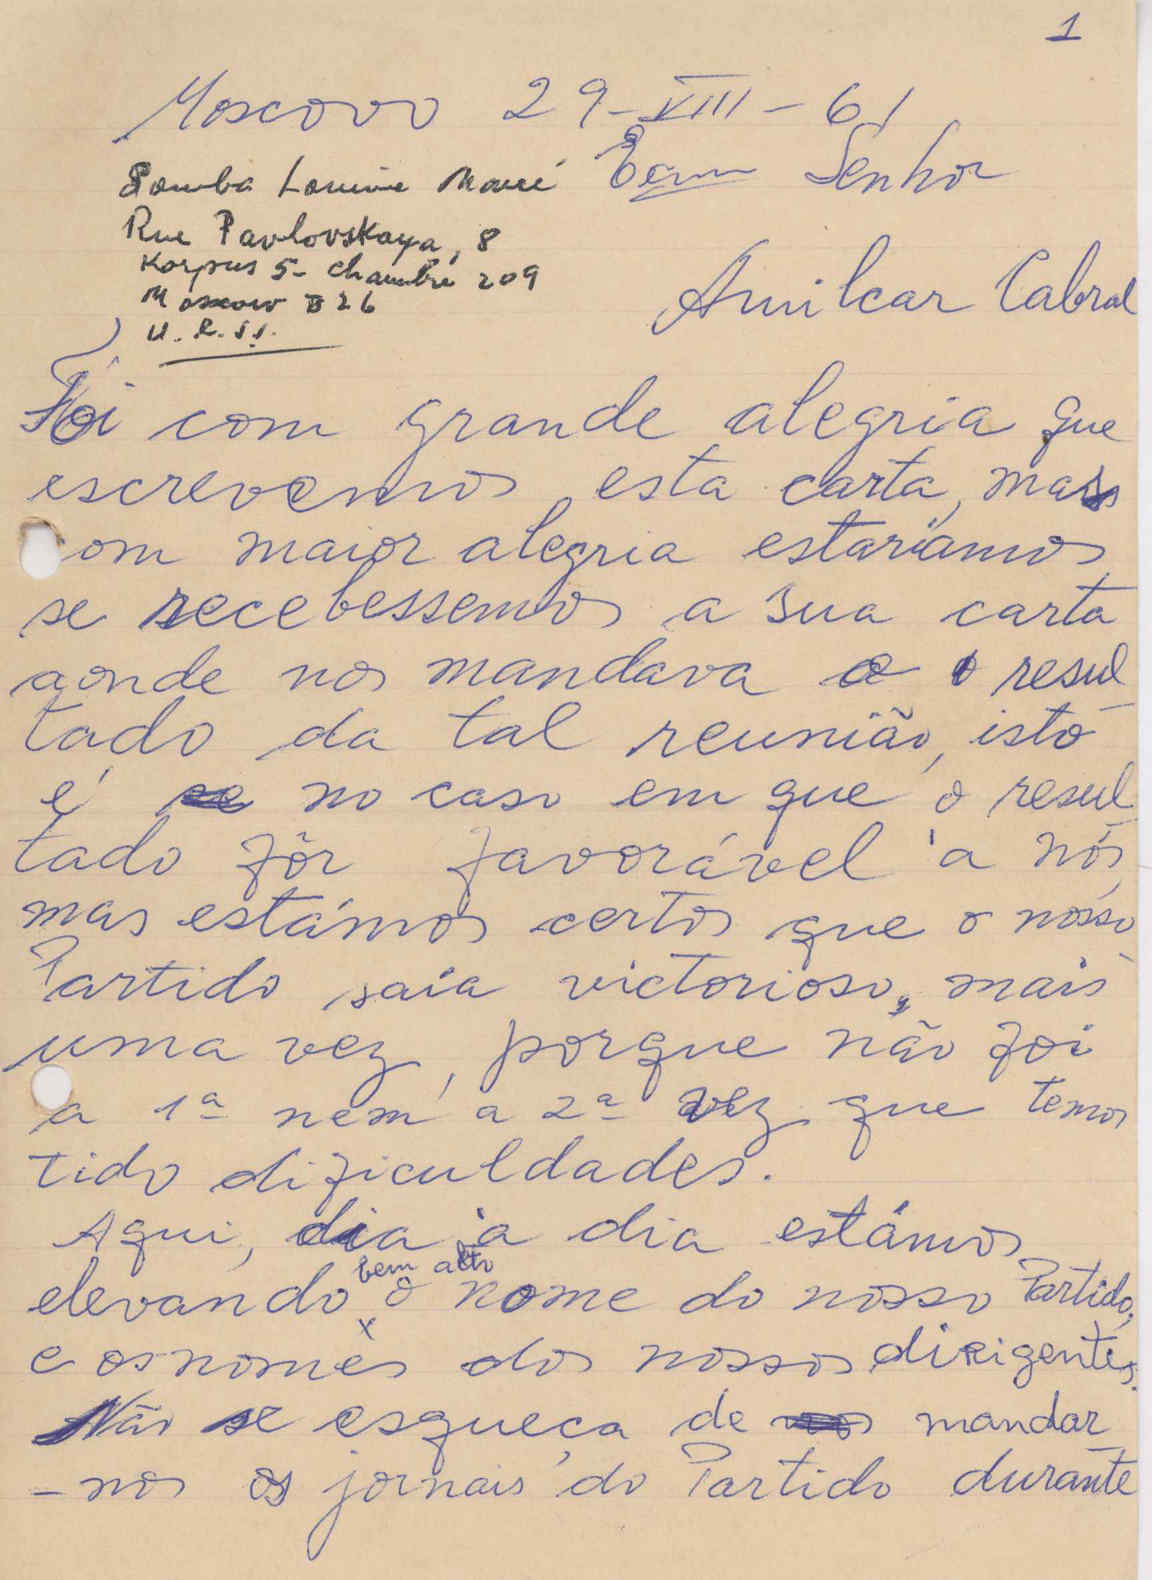 1
Moscovo 29-VIII-61
Exmo Senhor
Rue Pavlovskaya, 8
Korpus 5 - chambre 209
Moscow 26
U.R.S.S.
Amilcar Cabral
Foi com grande alegria que
escrevemos esta carta, mas
com maior alegria estaríamos
se recebessemos a sua carta
aonde nos mandava o resul
tado da tal reunião, isto
é no caso em que o resul
tado fôr favorável à nós,
mas estámos certos que o nosso
Partido saía victorioso, mais
uma vez, porque não foi
a 1ª nem a 2ª vez que temos
tido dificuldades.
Aqui, dia à dia estámos
elevando bem alto o nome do nosso Partido,
e os nomes dos nossos dirigentes.
Não se esqueça de mandar
-nos os jornais do Partido durante